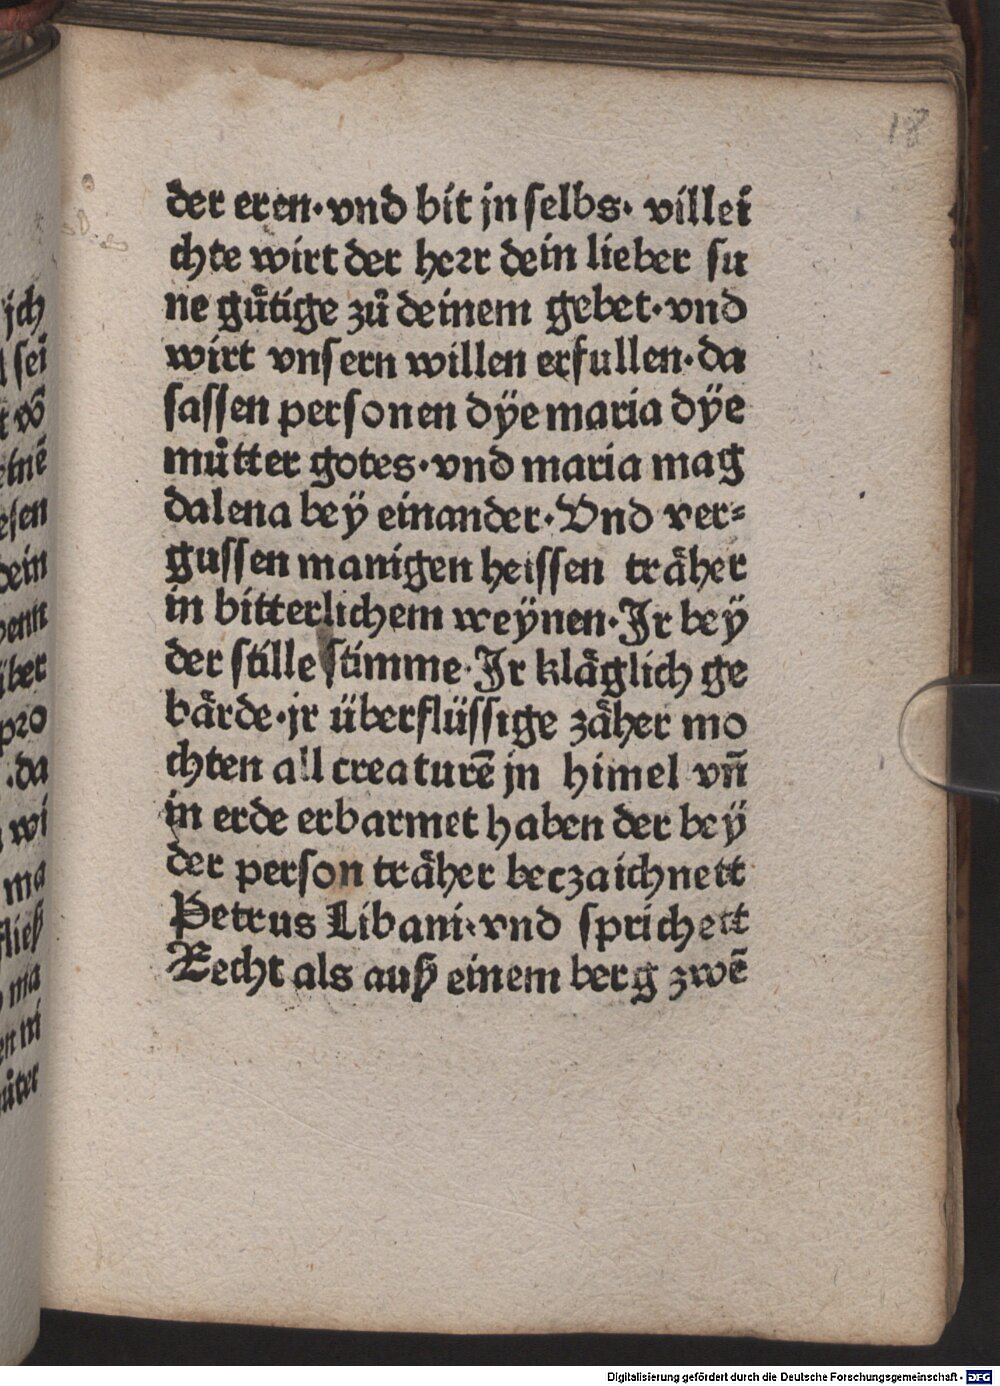 18
der eren·vnd bit jn selbs· villei
chte wirt der herr dein lieber su
ne gůtige zů deinem gebet·vnd
wirt vnsern willen erfullen·da
sassen personen dÿe maria dÿe
můtter gotes·vnd maria mag
dalena beÿ einander·Vnd ver⸗
gussen manigen heissen träher
in bitterlichem weÿnen·Jr beÿ
der stille stimme·Jr kläglich ge
bärde·jr überflüssige zäher mo
chten all creaturē jn himel vn̄
in erde erbarmet haben der beÿ
der person träher beczaichnett
Petrus Libani·vnd sprichett
Recht als auß einem berg zwē
jch
sei
t vō
einē
esen
dein
venn
über
pro
·da
wi
ma
fließ
ma
en ni
můter
Digitalisierung gefördert durch die Deutsche Forschungsgemeinschaft - DFG